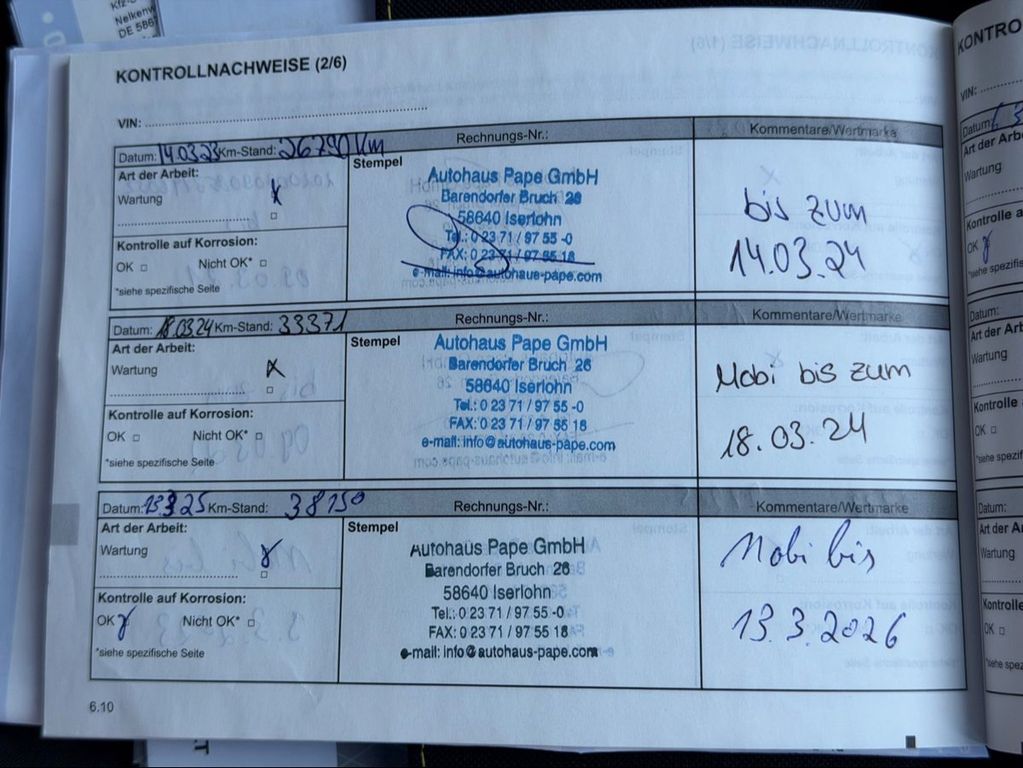 Nelkenw
DE 586
KONTROLLNACHWEISE (2/6)
VIN:
Datum: 14.03.23 Km-Stand: 26790 Km Rechnungs-Nr.: Kommentare/Wertmarke
Art der Arbeit:
Wartung x
Kontrolle auf Korrosion:
OK Nicht OK*
*siehe spezifische Seite
Stempel
Autohaus Pape GmbH
Barendorfer Bruch 26
58640 Iserlohn
Tel.: 0 23 71 / 97 55 -0
FAX: 0 23 71 / 97 55 18
e-mail: info@autohaus-pape.com
bis zum
14.03.24
Datum: 18.03.24 Km-Stand: 33371 Rechnungs-Nr.: Kommentare/Wertmarke
Art der Arbeit:
Wartung x
Kontrolle auf Korrosion:
OK Nicht OK*
*siehe spezifische Seite
Stempel
Autohaus Pape GmbH
Barendorfer Bruch 26
58640 Iserlohn
Tel.: 0 23 71 / 97 55 -0
FAX: 0 23 71 / 97 55 18
e-mail: info@autohaus-pape.com
Mobi bis zum
18.03.24
Datum: 13.3.25 Km-Stand: 38150 Rechnungs-Nr.: Kommentare/Wertmarke
Art der Arbeit:
Wartung x
Kontrolle auf Korrosion:
OK x Nicht OK*
*siehe spezifische Seite
Stempel
Autohaus Pape GmbH
Barendorfer Bruch 26
58640 Iserlohn
Tel.: 0 23 71 / 97 55 -0
FAX: 0 23 71 / 97 55 18
e-mail: info@autohaus-pape.com
Mobi bis
13.3.2026
6.10
KONTRO
VIN:
Datum:
Art der Arb
Wartung
Kontrolle a
OK x
*siehe spezifi
Datum:
Art der Arb
Wartung
Kontrolle
OK
*siehe spezif
Datum:
Art der A
Wartung
Kontrolle
OK
*siehe spez